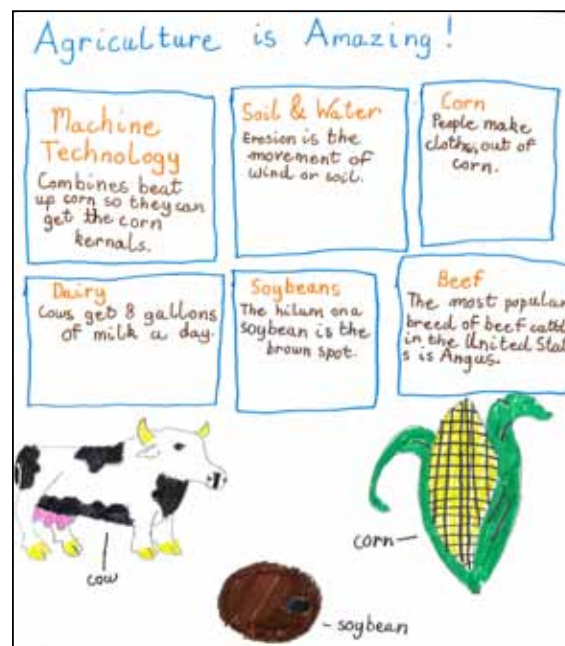 Agriculture is Amazing!
Machine
Technology
Combines beat
up corn so they can
get the corn
kernals.
Soil & Water
Erosion is the
movement of
wind or soil.
Corn
People make
clothes, out of
corn.
Dairy
Cows get 8 gallons
of milk a day.
Soybeans
The hilum on a
soybean is the
brown spot.
Beef
The most popular
breed of beef cattle
in the United State
s is Angus.
cow
corn
soybean